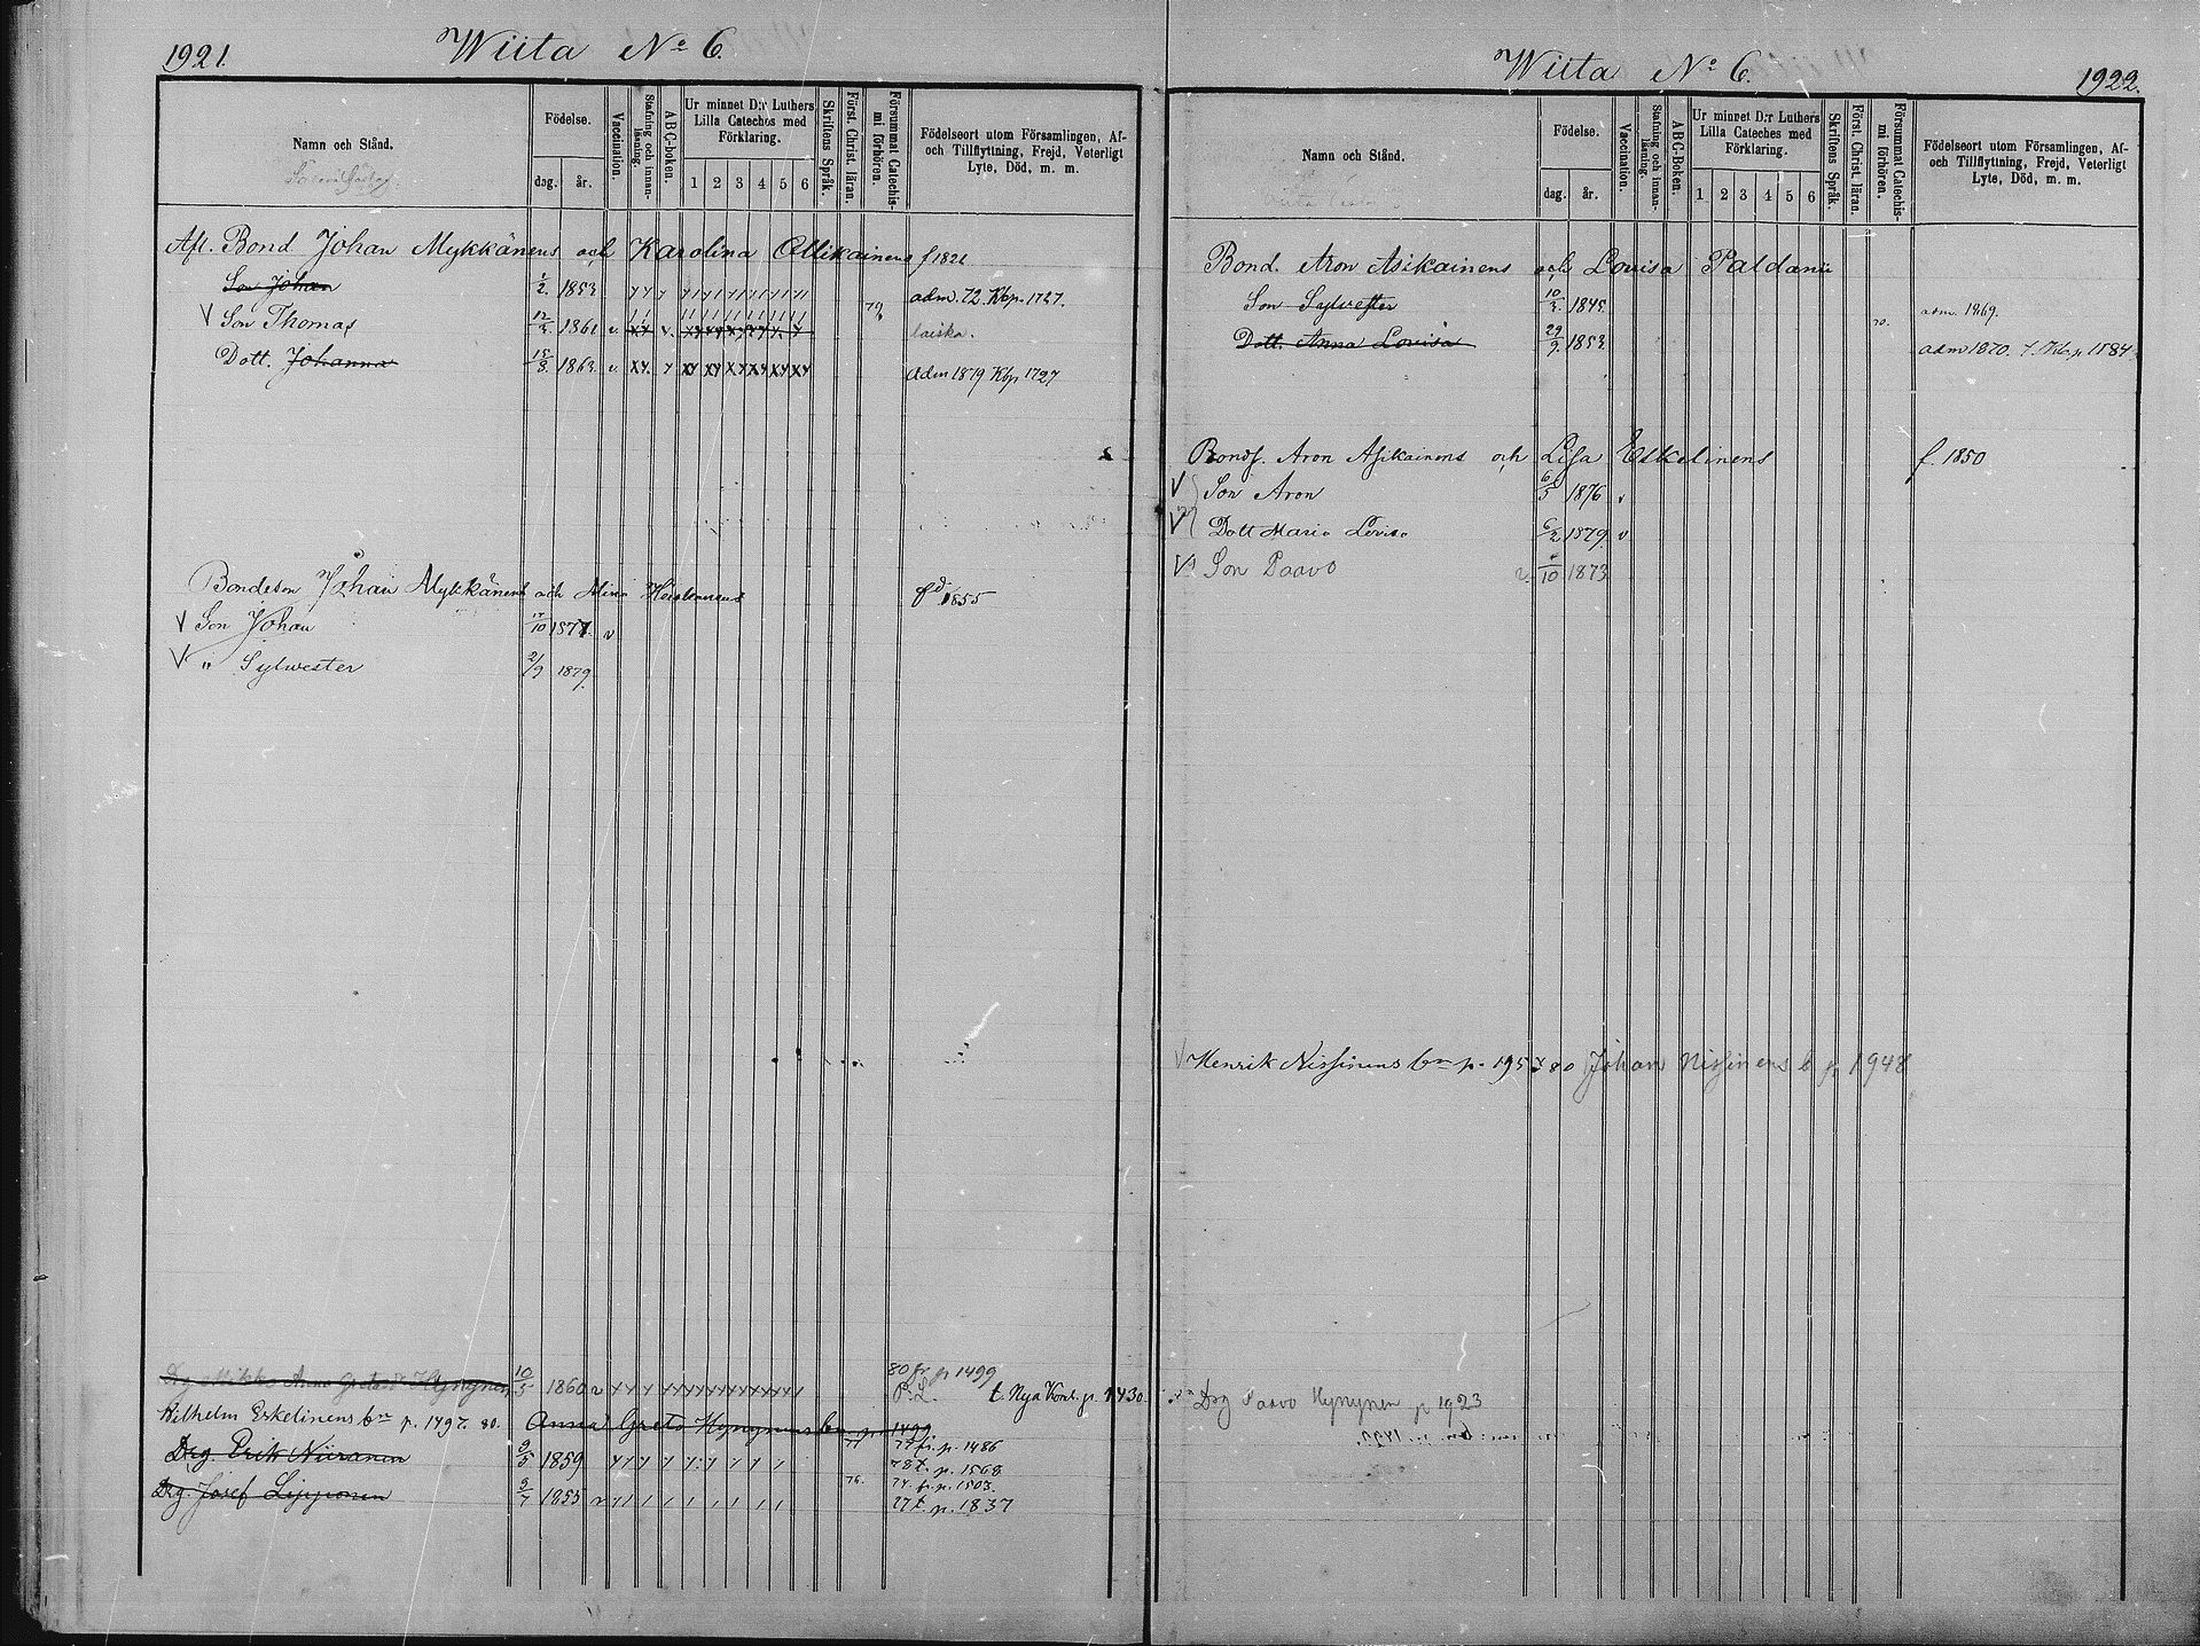 1921.
Wiita No 6.
Namn och Stånd.
Födelse.
dag.
år.
Vaccination.
Stafning och innan-läsning.
ABC-boken.
Ur minnet D:r Luthers
Lilla Catechos med
Förklaring.
1 2 3 4 5 6
Skriftens Språk.
Först. Christ. läran.
Försummat Catechis-mi förhören.
Födelseort utom Församlingen, Af-
och Tillflyttning, Frejd, Veterligt
Lyte, Död, m. m.
Afl. Bond Johan Mykkänens och Karolina Ollikainens f 1821
Son Johan 1/2. 1853 adm. 72. Kbp. 1727.
V Son Thomas 12/3. 1861 v. laiska.
Dott. Johanna 15/8. 1863. v. Adm 1879 Kbp 1727
Bondeson Johan Mykkänens och Mina Heiskanens fd 1855
V Son Johan 17/10 1877. v
V " Sylwester 2/9 1879.
Drg Mikko Anna Gretas Hynynen 10/5 1860 v 80 fr. p 1499
P. L. t. Nya Komb. p. 1430.
Wilhelm Eskelinens bn p. 1497. 80. Anna Greta Hynynens bn p. 1499
Drg. Erik Niiranen 9/5 1859 77 fr. p. 1486
78 t. p. 1568
Drg. Josef Lipponen 9/7 1855 v 76. 74. fr. p. 1503.
77 t. p. 1837
Wiita No 6.
1922.
Namn och Stånd.
Födelse.
dag.
år.
Vaccination.
Stafning och innan-läsning.
ABC-Boken.
Ur minnet D:r Luthers
Lilla Cateches med
Förklaring.
1 2 3 4 5 6
Skriftens Språk.
Först. Christ. läran.
Försummat Catechis-mi förhören.
Födelseort utom Församlingen, Af-
och Tillflyttning, Frejd, Veterligt
Lyte, Död, m. m.
Bond. Aron Asikainens och Lovisa Paldanii
Son Sylvester 10/3. 1845. adm. 1869.
Dott. Anna Lovisa 29/9. 1853. 70. adm 1870. t. Kb. p 1584
Bonds. Aron Asikainens och Lisa Eskelinens f. 1850
V Son Aron 6/5 1876 v
V Dott Maria Lovisa 6/2 1879. v
V Son Paavo /10 1873
V Henrik Nissinens bn p. 195 80 Johan Nissinens b p 1948
Drg Paavo Hynynen p 1923